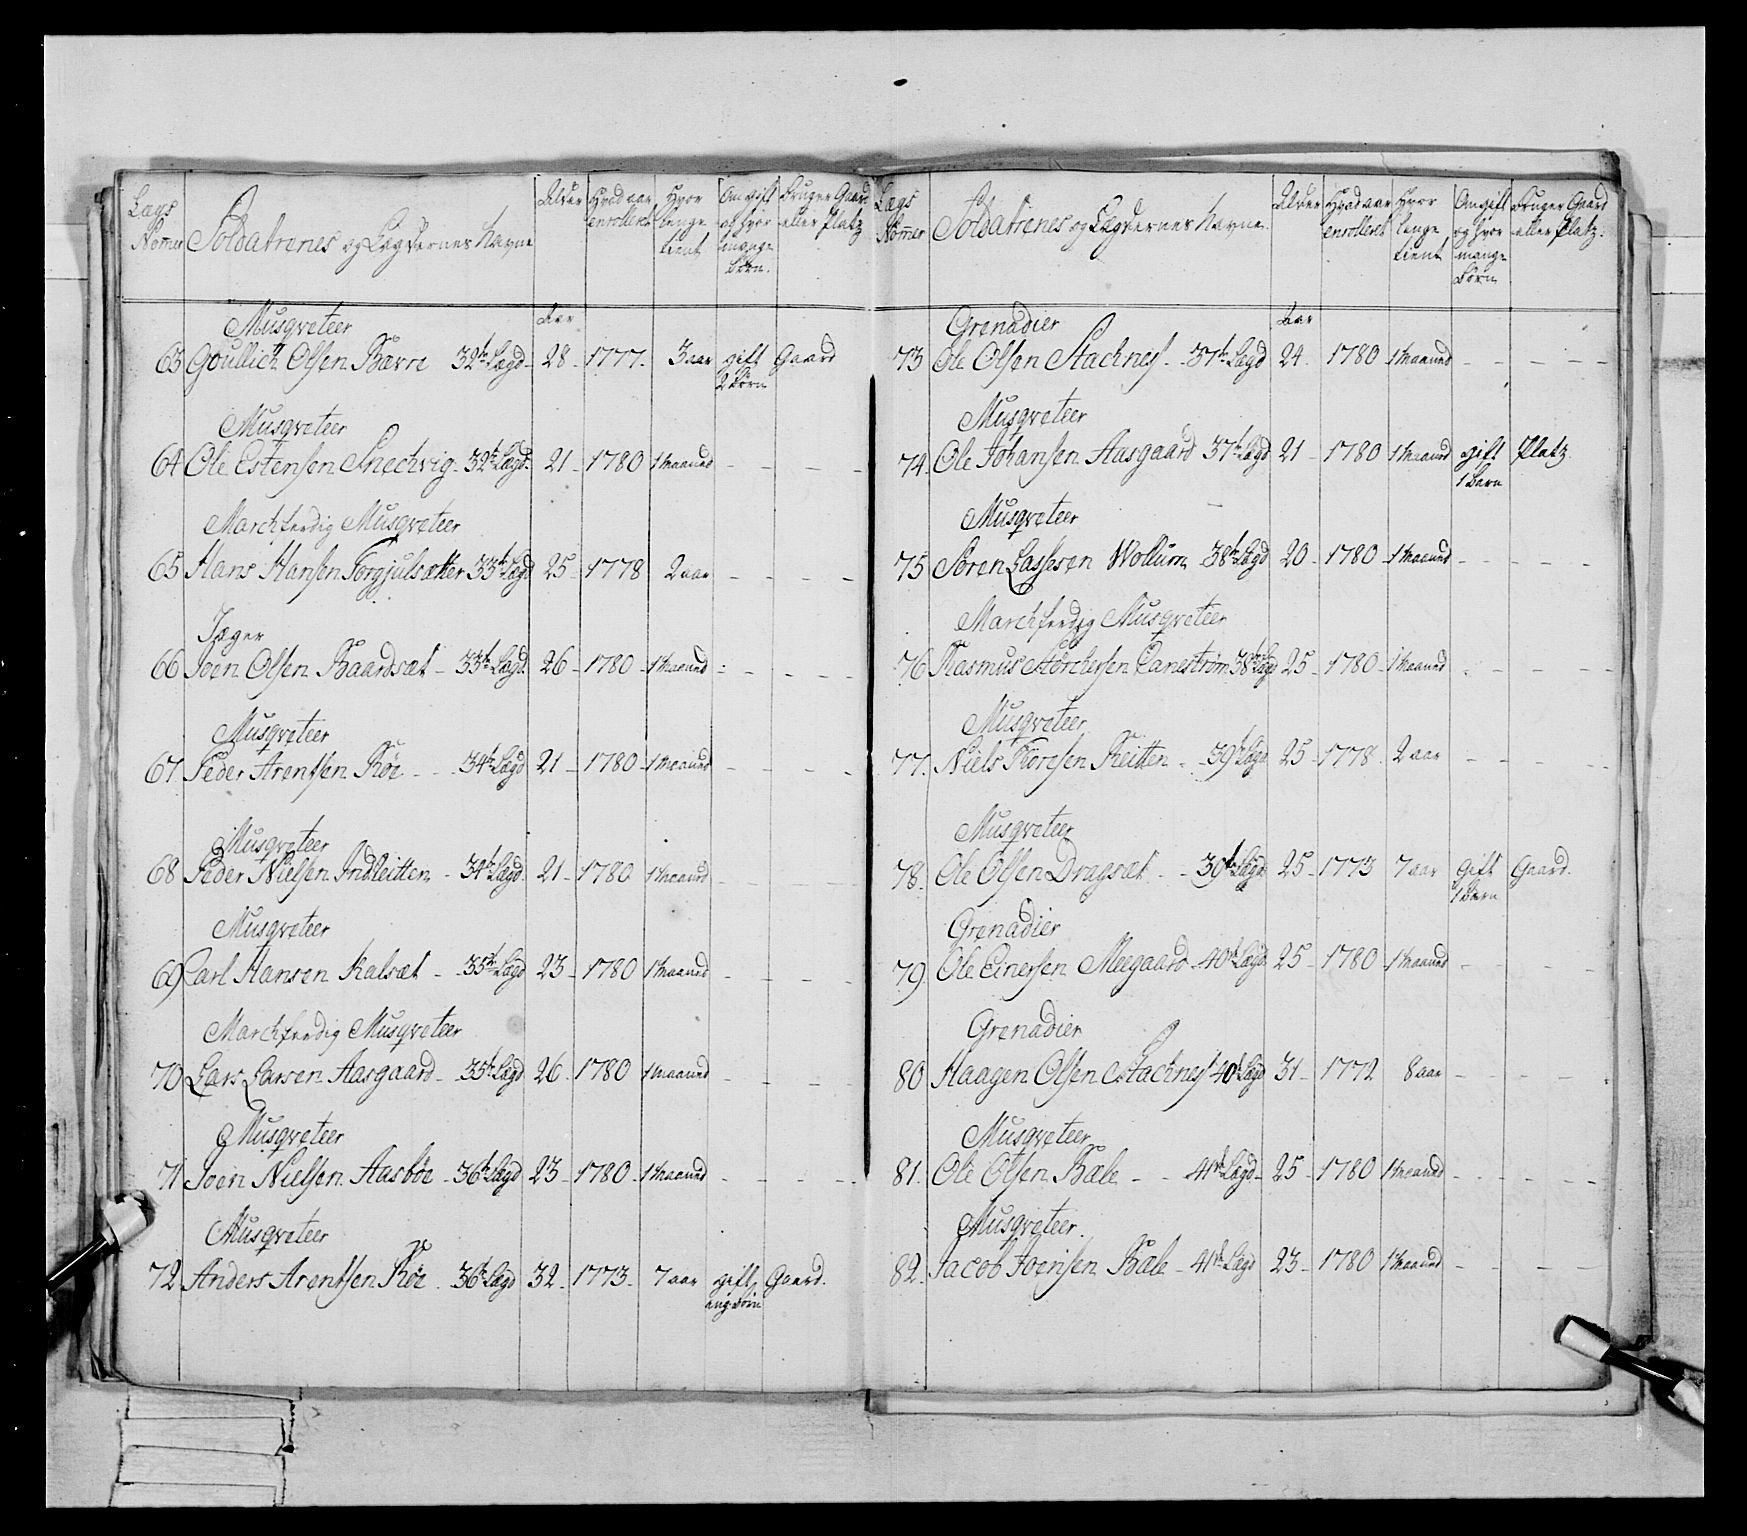 Lægs Nomer
Soldaternes og Lægdernes Navne
Alder
Hvad aar enrolleret
Hvor lenge tient
Om gift og hvor mange Børn.
Bruger Gaard eller Platz
Musqveteer
Aar
63 Goullich Olsen Bævre 32te Lægd 28 1777. 3 aar gift 2 Børn Gaard
Musqveteer
64 Ole Estensen Snechvig 32te Lægd. 21 1780 1 Maaned
Marchferdig Musqveteer
65 Hans Hansen Torgjulsætter 33te Lægd 25 1778 2 aar
Jæger
66 Joen Olsen Baardsæt 33te Lægd. 26 1780 1 Maaned
Musqveteer
67 Peder Arentsen Bøe 34te Lægd 21 1780 1 Maaned
Musqveteer
68 Peder Nielsen Indleitten 34te Lægd. 21 1780 1 Maaned
Musqveteer
69 Carl Hansen Kalsæt 35te Lægd 23 1780 1 Maaned
Marchferdig Musqveteer
70 Lars Larsen Aasgaard 35te Lægd 26 1780 1 Maaned
Musqveteer
71 Joen Nielsen Aasbøe 36te Lægd 23 1780 1 Maaned
Musqveteer
72 Anders Arentsen Bøe 36te Lægd 32 1773 7 aar gift ing. Børn Gaard.
Lægs Nomer
Soldaternes og Lægdernes Navne.
Alder
Hvad aar enrolleret
Hvor lenge tient
Om gift og hvor mange Børn
Bruger Gaard eller Platz.
Grenadier
Aar
73 Ole Olsen Stachnes 37te Lægd 24 1780 1 Maaned
Musqveteer
74 Ole Johansen Aasgaard 37te Lægd 21 1780 1 Maaned gift 1 Barn Platz.
Musqveteer
75 Søren Lassesen Wollum 38te Lægd 20 1780 1 Maaned
Marchferdig Musqveteer
76 Rasmus Størchersen Canestrøm 38te Lægd 25 1780 1 Maaned
Musqveteer
77. Niels Toresen Reitten 39te Lægd 25 1778. 2 aar
Musqveteer
78. Ole Olsen Dragsæt 39te Lægd 25 1773 7 aar Gift 1 Barn Gaard.
Grenadier
79. Ole Einersen Meegaard 40de Lægd 25 1780 1 Maaned
Grenadier
80 Haagen Olsen Stachnes 40de Lægd 31 1772 8 aar
Musqveteer
81. Ole Olsen Bale 41de Lægd 25 1780 1 Maaned
Musqveteer.
82. Jacob Joensen Bale 41de Lægd 23 1780 1 Maaned